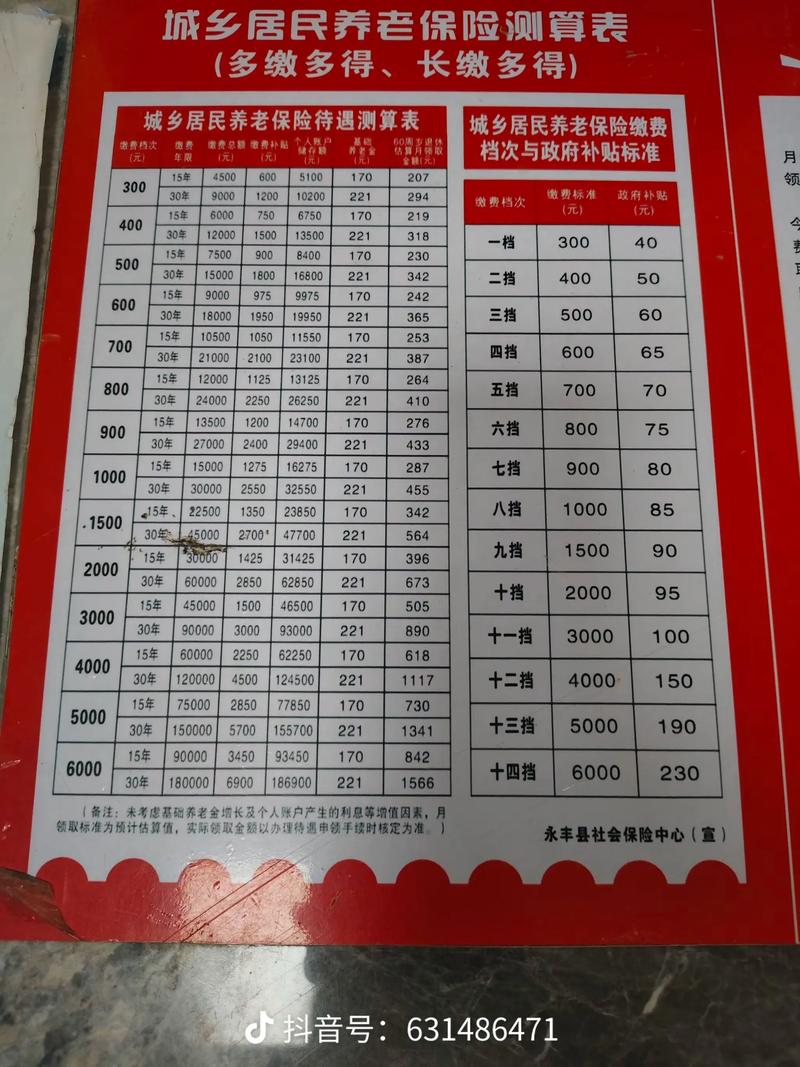 城乡居民养老保险测算表
(多缴多得、长缴多得)
城乡居民养老保险待遇测算表
缴费档次(元) 缴费年限 缴费总额(元) 缴费补贴(元) 个人账户储存额(元) 基础养老金(元) 60周岁退休估算月领取金额(元)
300 15年 4500 600 5100 170 207
30年 9000 1200 10200 221 294
400 15年 6000 750 6750 170 219
30年 12000 1500 13500 221 318
500 15年 7500 900 8400 170 230
30年 15000 1800 16800 221 342
600 15年 9000 975 9975 170 242
30年 18000 1950 19950 221 365
700 15年 10500 1050 11550 170 253
30年 21000 2100 23100 221 387
800 15年 12000 1125 13125 170 264
30年 24000 2250 26250 221 410
900 15年 13500 1200 14700 170 276
30年 27000 2400 29400 221 433
1000 15年 15000 1275 16275 170 287
30年 30000 2550 32550 221 455
1500 15年 22500 1350 23850 170 342
30年 45000 2700 47700 221 564
2000 15年 30000 1425 31425 170 396
30年 60000 2850 62850 221 673
3000 15年 45000 1500 46500 170 505
30年 90000 3000 93000 221 890
4000 15年 60000 2250 62250 170 618
30年 120000 4500 124500 221 1117
5000 15年 75000 2850 77850 170 730
30年 150000 5700 155700 221 1341
6000 15年 90000 3450 93450 170 842
30年 180000 6900 186900 221 1566
(备注：未考虑基础养老金增长及个人账户产生的利息等增值因素，月
领取标准为预计估算值，实际领取金额以办理待遇申领手续时核定为准。)
城乡居民养老保险缴费
档次与政府补贴标准
缴费档次 缴费标准(元) 政府补贴(元)
一档 300 40
二挡 400 50
三挡 500 60
四挡 600 65
五挡 700 70
六挡 800 75
七挡 900 80
八挡 1000 85
九挡 1500 90
十挡 2000 95
十一挡 3000 100
十二挡 4000 150
十三挡 5000 190
十四挡 6000 230
永丰县社会保险中心(宣)
月
领
今
费
抖音号：631486471